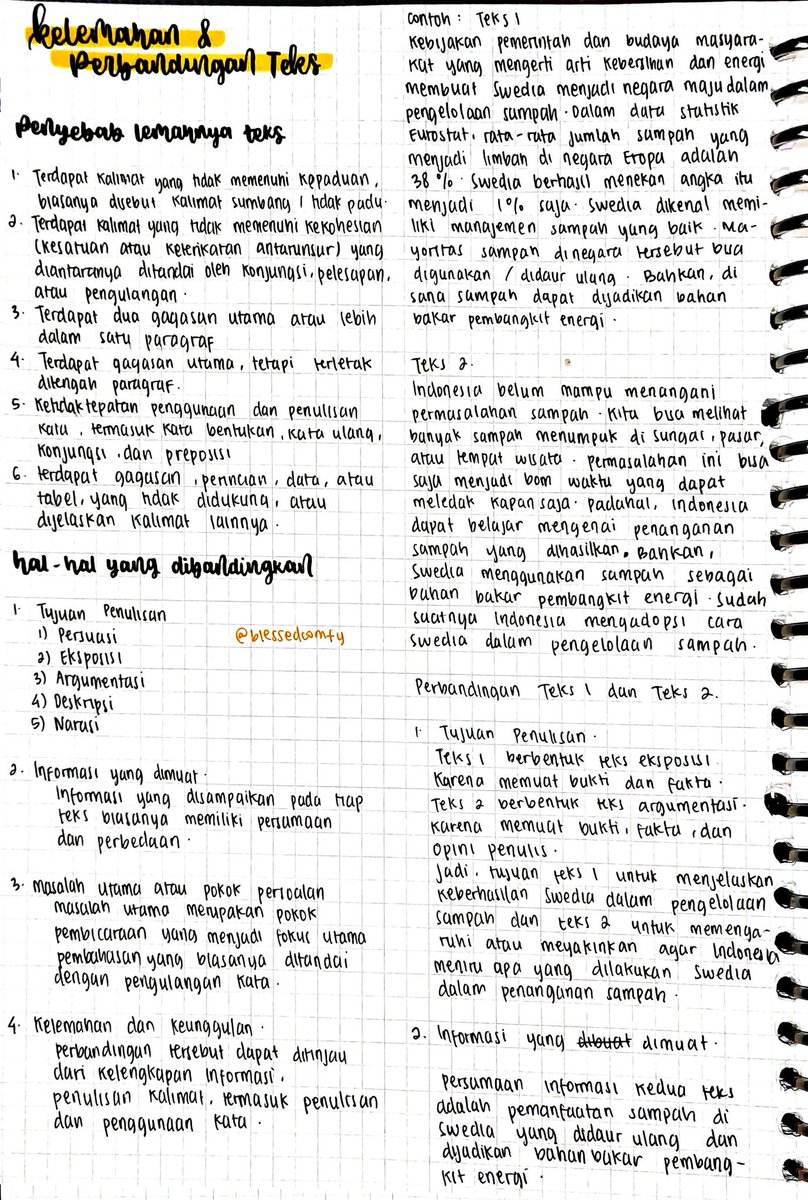 kelemahan &
Perbandingan Teks
Penyebab lemahnya teks
1. Terdapat kalimat yang tidak memenuhi kepaduan,
biasanya disebut kalimat sumbang / tidak padu.
2. Terdapat kalimat yang tidak memenuhi kekohesian
(kesatuan atau keterikatan antarunsur) yang
diantaranya ditandai oleh konjungsi, pelesapan,
atau pengulangan.
3. Terdapat dua gagasan utama atau lebih
dalam satu paragraf
4. Terdapat gagasan utama, tetapi terletak
ditengah paragraf.
5. Ketidaktepatan penggunaan dan penulisan
kata, termasuk kata bentukan, kata ulang,
konjungsi, dan preposisi
6. terdapat gagasan, perincian, data, atau
tabel, yang tidak didukung, atau
dijelaskan kalimat lainnya.
hal-hal yang dibandingkan
1. Tujuan Penulisan
1) Persuasi
@blessedcomfy
2) Eksposisi
3) Argumentasi
4) Deskripsi
5) Narasi
2. Informasi yang dimuat.
Informasi yang disampaikan pada tiap
teks biasanya memiliki persamaan
dan perbedaan.
3. masalah utama atau pokok persoalan
masalah utama merupakan pokok
pembicaraan yang menjadi fokus utama
pembahasan yang biasanya ditandai
dengan pengulangan kata.
4. Kelemahan dan keunggulan.
perbandingan tersebut dapat ditinjau
dari kelengkapan informasi,
penulisan kalimat, termasuk penulisan
dan penggunaan kata.
Contoh : Teks 1
Kebijakan pemerintah dan budaya masyara-
kat yang mengerti arti kebersihan dan energi
membuat Swedia menjadi negara maju dalam
pengelolaan sampah. Dalam data statistik
Eurostat, rata-rata jumlah sampah yang
menjadi limbah di negara Eropa adalah
38%. Swedia berhasil menekan angka itu
menjadi 1% saja. Swedia dikenal memi-
liki manajemen sampah yang baik. Ma-
yoritas sampah dinegara tersebut bisa
digunakan / didaur ulang. Bahkan, di
sana sampah dapat dijadikan bahan
bakar pembangkit energi.
Teks 2.
Indonesia belum mampu menangani
permasalahan sampah. Kita bisa melihat
banyak sampah menumpuk di sungai, pasar,
atau tempat wisata. permasalahan ini bisa
saja menjadi bom waktu yang dapat
meledak kapan saja. padahal, Indonesia
dapat belajar mengenai penanganan
sampah yang dihasilkan. Bahkan,
Swedia menggunakan sampah sebagai
bahan bakar pembangkit energi. Sudah
saatnya Indonesia mengadopsi cara
Swedia dalam pengelolaan sampah.
Perbandingan Teks 1 dan Teks 2.
1. Tujuan Penulisan.
Teks 1 berbentuk teks eksposisi.
Karena memuat bukti dan fakta.
Teks 2 berbentuk teks argumentasi.
Karena memuat bukti, fakta, dan
opini penulis.
Jadi, tujuan teks 1 untuk menjelaskan
keberhasilan Swedia dalam pengelolaan
sampah dan teks 2 untuk memenga-
ruhi atau meyakinkan agar Indonesia
meniru apa yang dilakukan Swedia
dalam penanganan sampah.
2. Informasi yang dibuat dimuat.
Persamaan informasi kedua teks
adalah pemanfaatan sampah di
Swedia yang didaur ulang dan
dijadikan bahan bakar pembang-
kit energi.